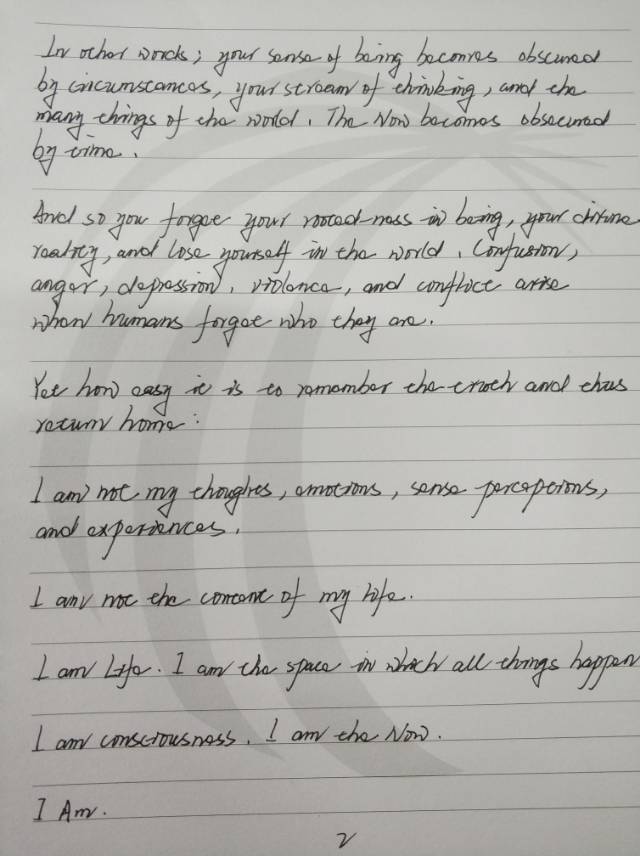 In other words; your sense of being becomes obscured
by circumstances, your stream of thinking, and the
many things of the world. The Now becomes obscured
by time.
And so you forget your rootedness in being, your divine
reality, and lose yourself in the world. Confusion,
anger, depression, violence, and conflict arise
when humans forget who they are.
Yet how easy it is to remember the truth and thus
return home:
I am not my thoughts, emotions, sense perceptions,
and experiences.
I am not the content of my life.
I am Life. I am the space in which all things happen
I am consciousness. I am the Now.
I Am.
2